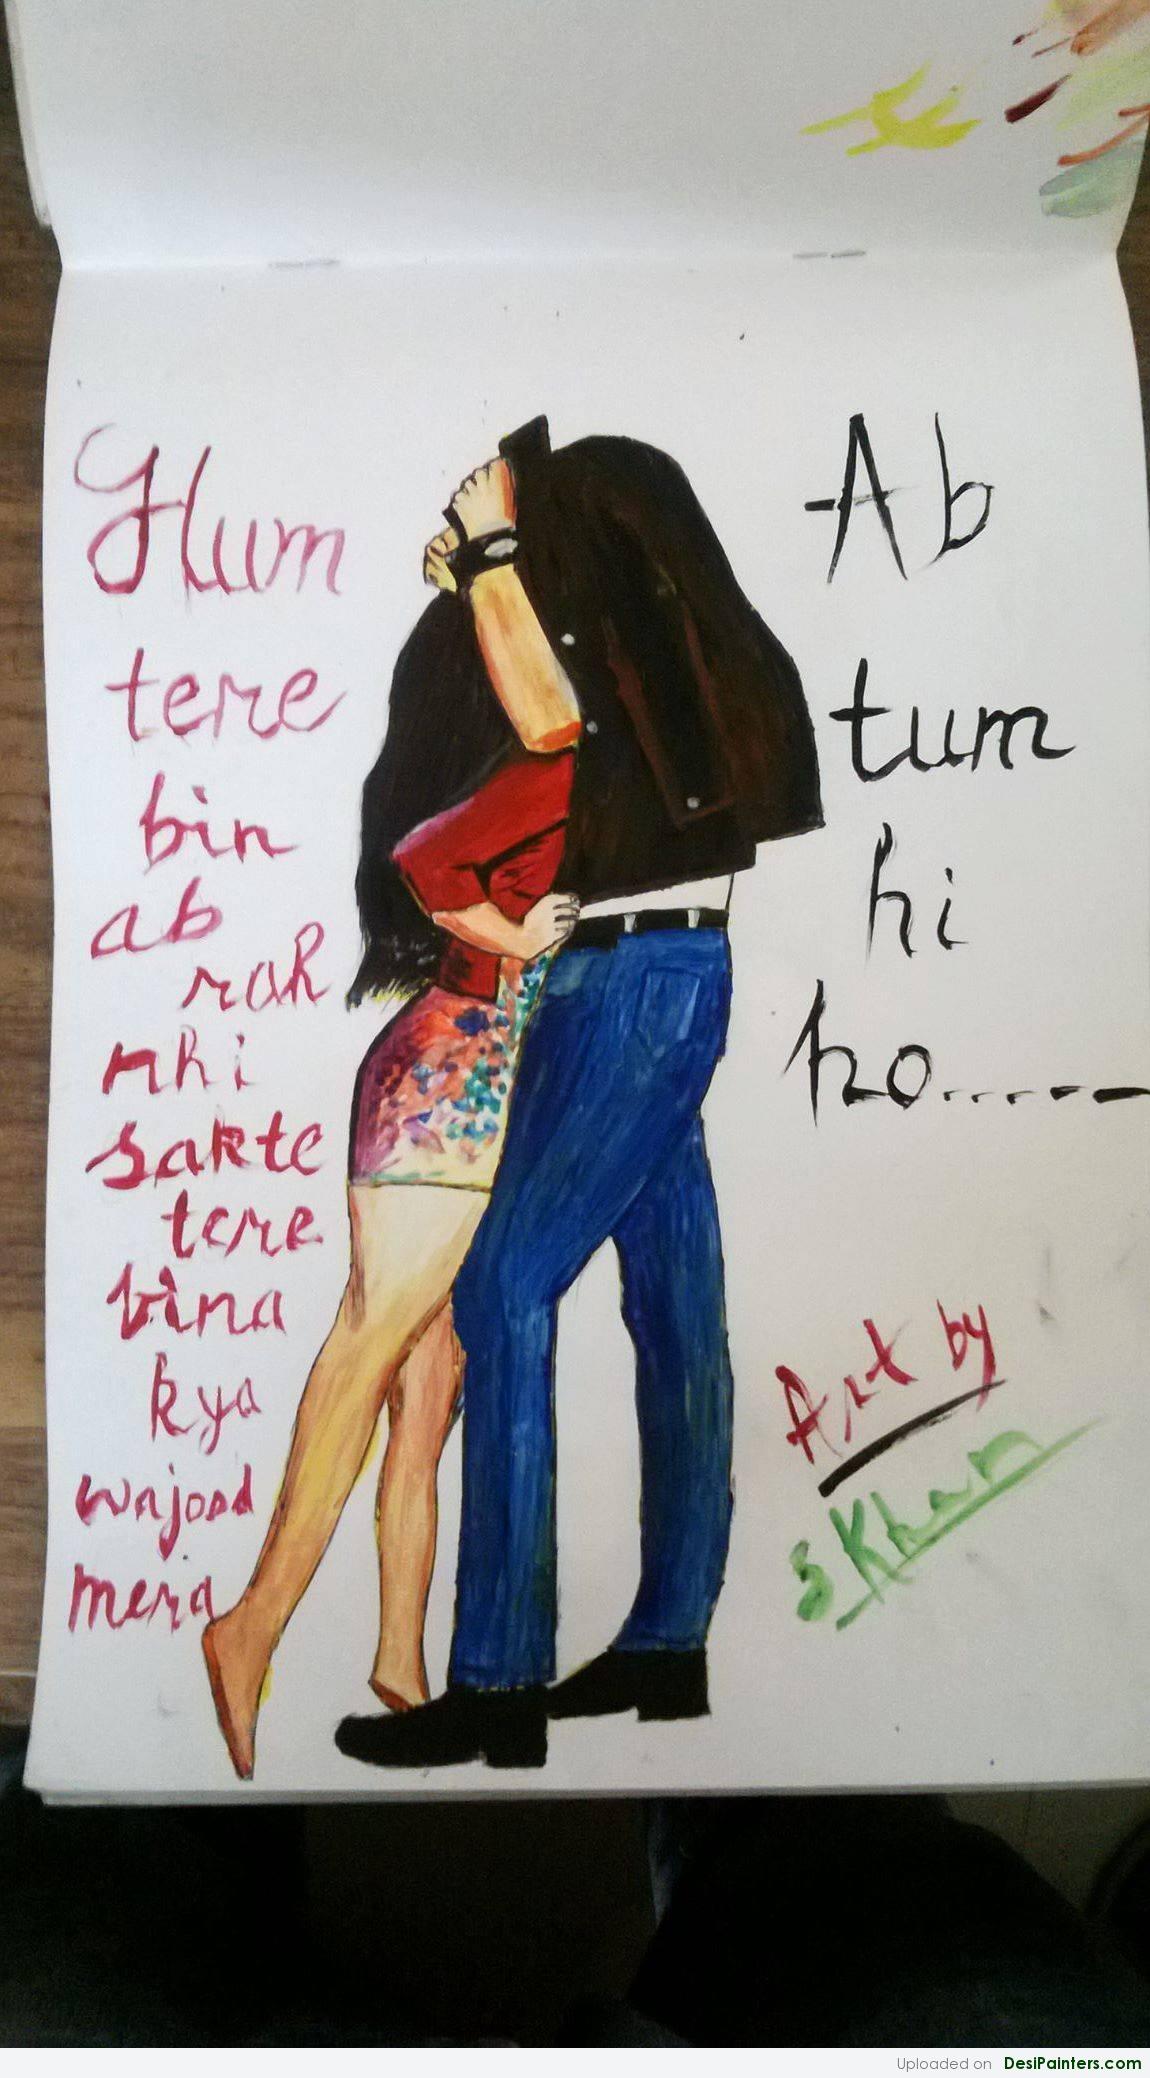 Hum
tere
bin
ab
rah
nhi
sakte
tere
bina
kya
wajood
mera
Ab
tum
hi
ho......---
Art by
S Khan
Uploaded on DesiPainters.com